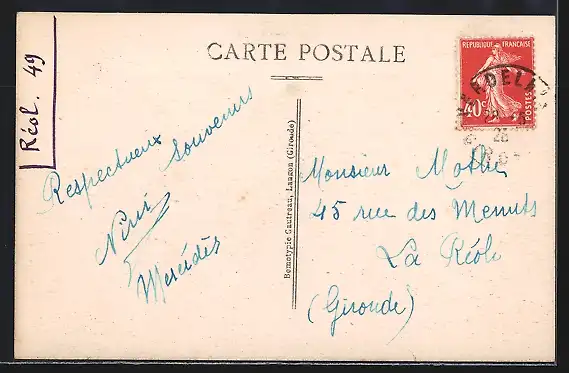 CARTE POSTALE
Réol. 49
Respectueux souvenirs
Nini
Mercédès
Bemotypie Gautreau, Langon (Gironde)
REPUBLIQUE FRANÇAISE
40c
POSTES
28
Monsieur Mothe
45 rue des Menuts
La Réole
(Gironde)